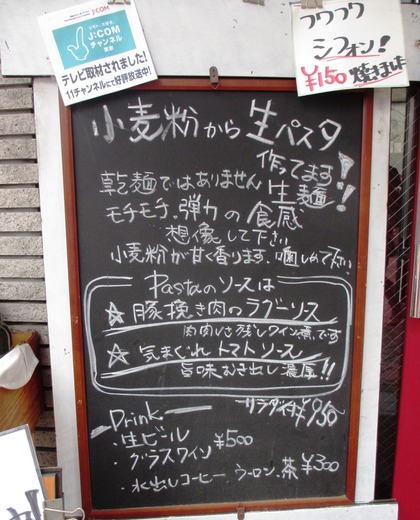 J:COM
J:COM
チャンネル
東京
テレビ取材されました!
11チャンネルにて好評放送中!
フワフワ
シフォン!
¥150
小麦粉から生パスタ
作ってます!
乾麺ではありません 生麺!!
モチモチ.弾力の食感
想像して下さい
小麦粉が甘く香ります.噛しめて下さい
Pastaのソースは
☆ 豚挽き肉のラグーソース
肉肉しさ残しワイン煮です
☆ 気まぐれトマトソース
旨味むき出し濃厚!!
サラダ付 ¥950
Drink
・生ビール
・グラスワイン ¥500
・水出しコーヒー ウーロン.茶 ¥300